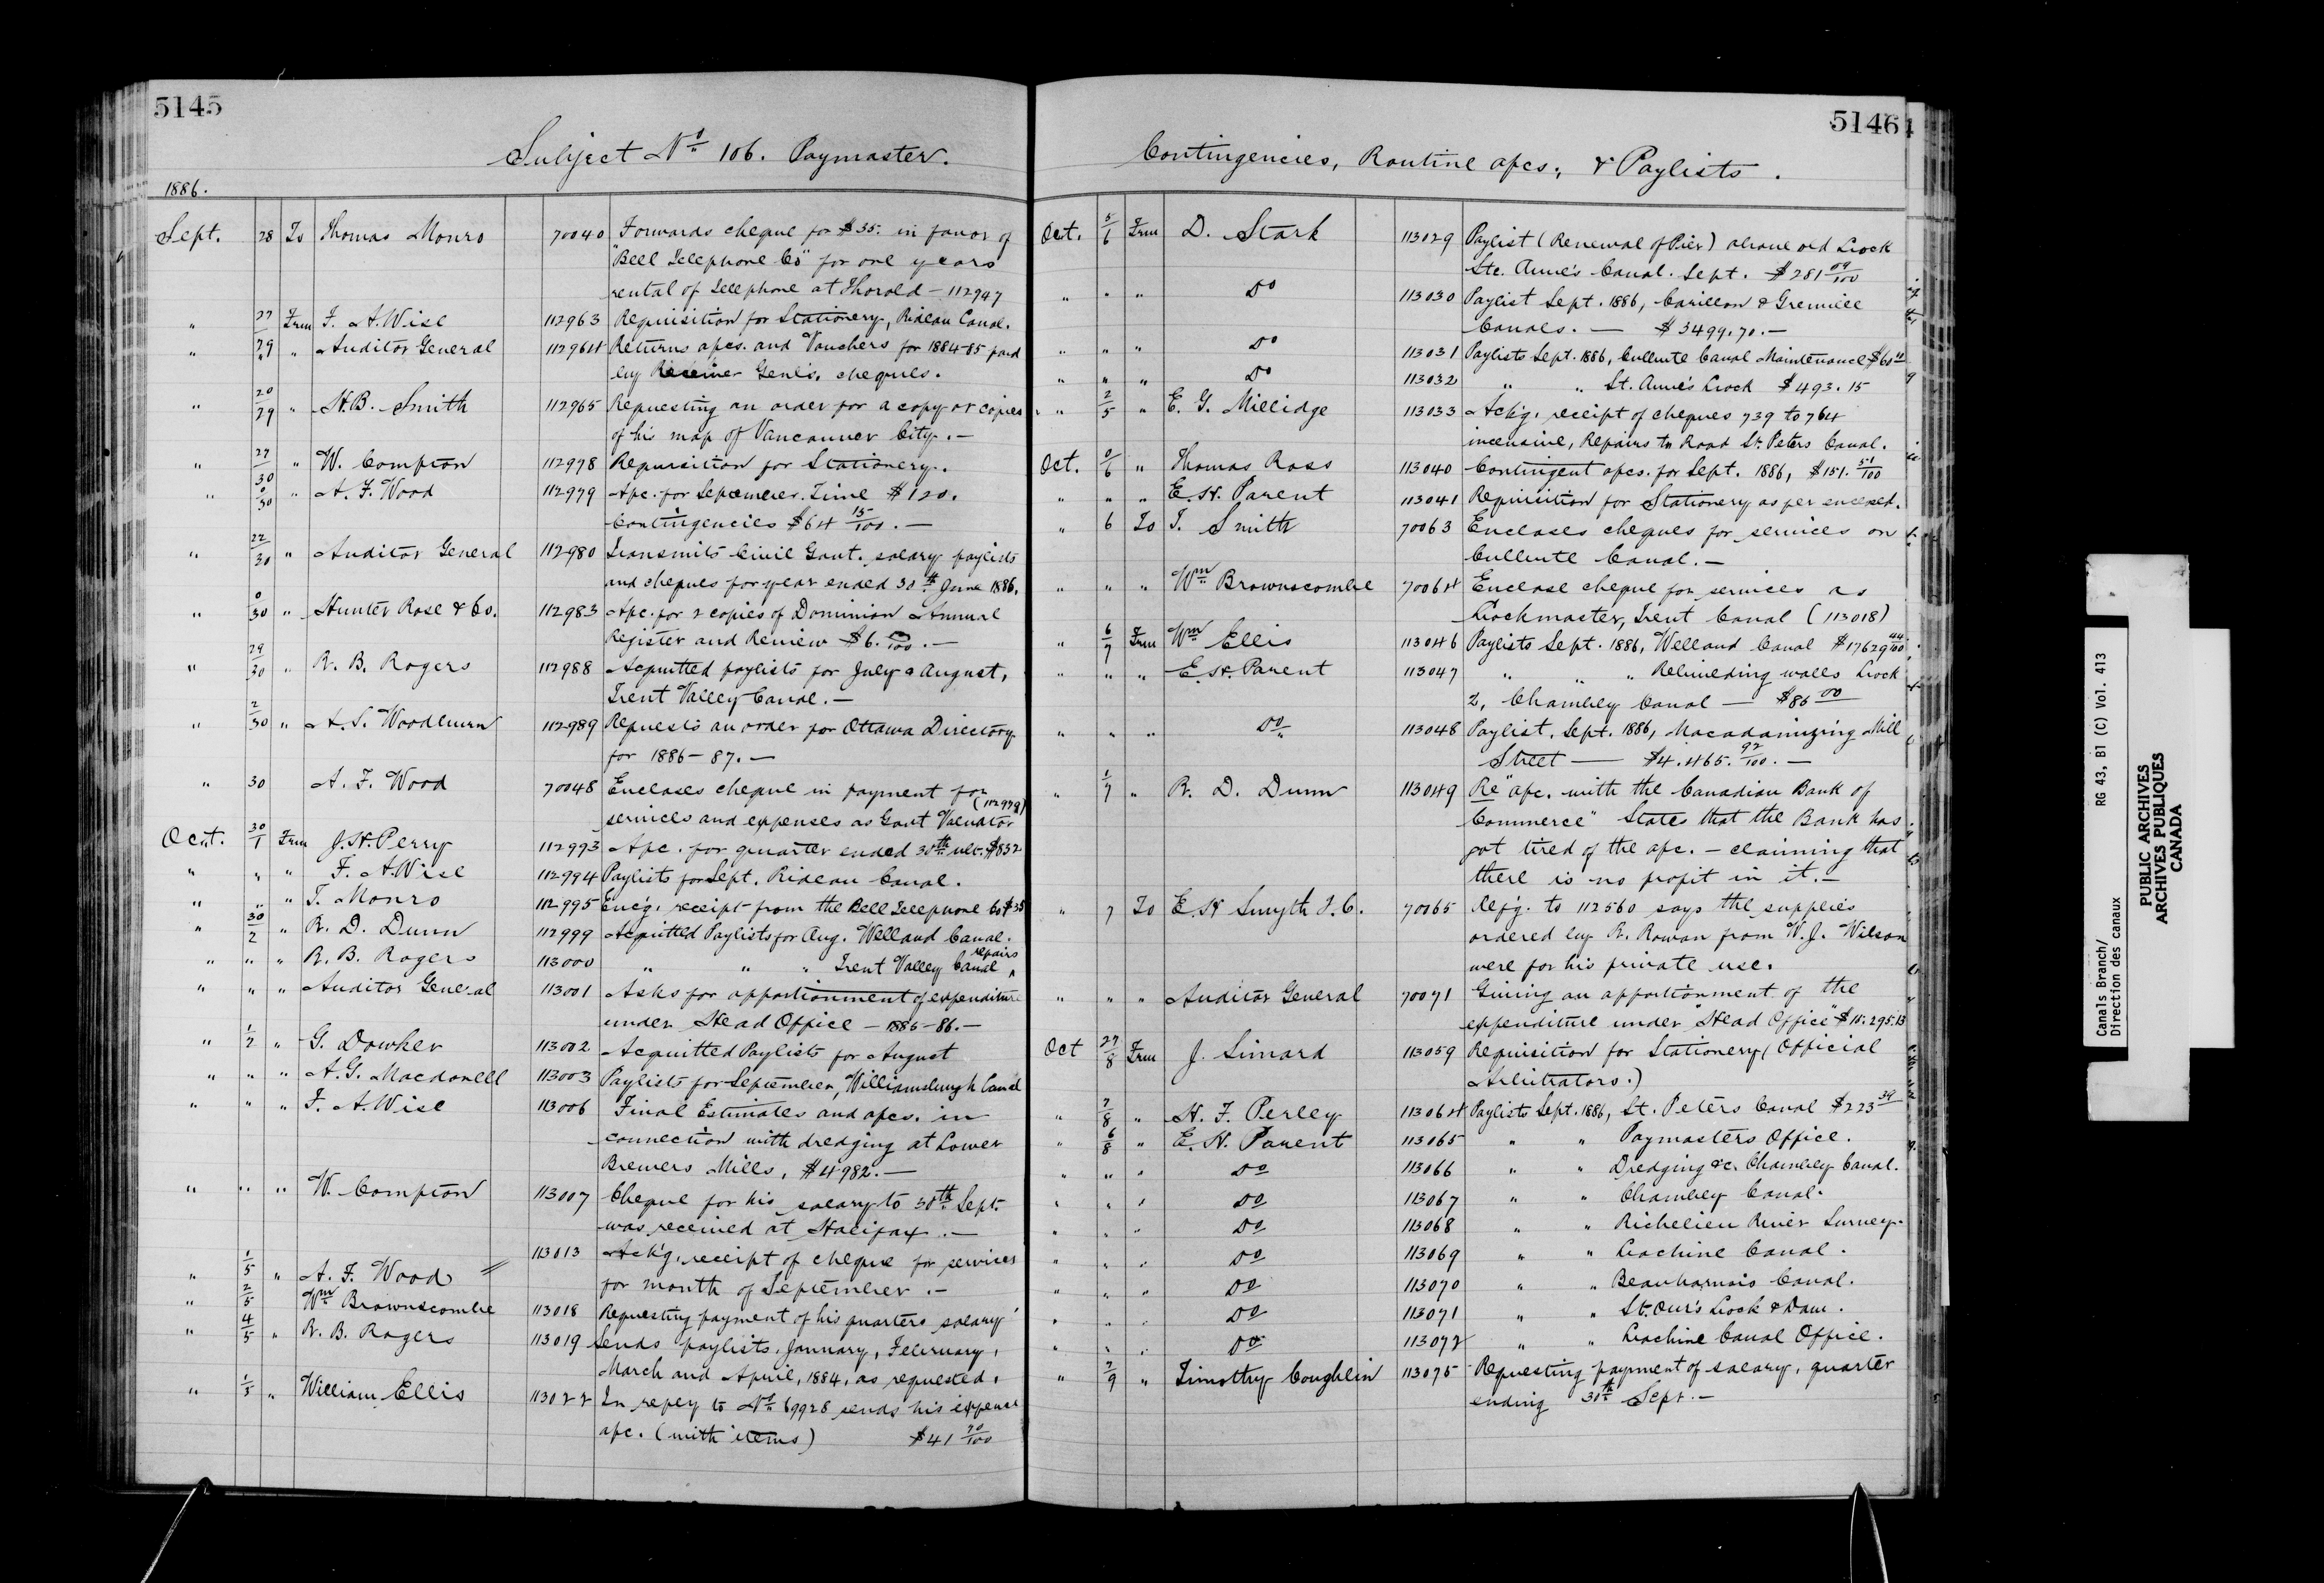 5145
Subject No 106. Paymaster.
1886.
Sept. 28 To Thomas Monro 70040 Forwards cheque for $35. in favor of
"Bell Telephone Co" for one years
rental of Telephone at Thorold - 112947
" 27/29 Frm F. A. Wise 112963 Requisition for Stationery, Rideau Canal.
" 29/" " Auditor General 112964 Returns a/cs. and Vouchers for 1884-85 paid
by Receiver Genl's. cheques.
" 20/29 " H.B. Smith 112965 Requesting an order for a copy or copies
of his map of Vancouver City. -
" 27/30 " W. Compton 112978 Requisition for Stationery.
" 0/30 " A. F. Wood 112979 A/c. for September. Time $120.
Contingencies $64 15/100. -
" 22/30 " Auditor General 112980 Transmits Civil Govt. salary paylists
and cheques for year ended 30th June 1886.
" 0/30 " Hunter Rose & Co. 112983 A/c. for 2 copies of Dominion Annual
Register and Review $6. 00/100. -
" 29/30 " R. B. Rogers 112988 Acquitted paylists for July & August,
Trent Valley Canal. -
" 2/30 " A. S. Woodburn 112989 Requests an order for Ottawa Directory
for 1886-87. -
" 30 A. F. Wood 70048 Encloses cheque in payment for
(112979)
services and expenses as Govt Valuator
Oct. 30/1 Frm J. H. Perry 112993 A/c. for quarter ended 30th ult. $832
" " " F. A. Wise 112994 Paylists for Sept. Rideau Canal.
" " " T. Monro 112995 Enc'g. receipt from the Bell Telephone Co $35
" 30/2 " R. D. Dunn 112999 Acquitted Paylists for Aug. Welland Canal.
" " " R. B. Rogers 113000 " " " Trent Valley Canal repairs
" " " Auditor General 113001 Asks for apportionment of expenditure
under Head Office - 1885-86. -
" 1/2 " G. Dowker 113002 Acquitted Paylists for August
" " " A. G. Macdonell 113003 Paylists for September, Williamsburgh Canal
" " " F. A. Wise 113006 Final Estimates and a/cs. in
connection with dredging at Lower
Brewers Mills, $4982. -
" " " W. Compton 113007 Cheque for his salary to 30th Sept.
was received at Halifax. -
" 1/5 " A. F. Wood 113013 Ack'g. receipt of cheque for services
for month of September. -
" 2/5 Wm Brownscombe 113018 Requesting payment of his quarters salary
" 4/5 " R. B. Rogers 113019 Sends paylists, January, February,
March and April, 1884, as requested.
" 1/5 " William Ellis 113022 In reply to No 69928 sends his expense
a/c. (with items) $41 70/100
5146
Contingencies, Routine a/cs, & Paylists.
Oct. 5/6 Frm D. Stark 113029 Paylist (Renewal of Pier) above old Lock
Ste. Anne's Canal. Sept. $281 09/100
" " " Do 113030 Paylist Sept. 1886, Carillon & Grenville
Canals. - $3499.70. -
" " " Do 113031 Paylists Sept. 1886, Culbute Canal Maintenance $60
" " " Do 113032 " " St. Anne's Lock $493.15
" 2/5 " E. G. Millidge 113033 Ack'g. receipt of cheques 739 to 764
inclusive, Repairs to Road St. Peters Canal.
Oct. 0/6 " Thomas Ross 113040 Contingent a/cs. for Sept. 1886, $151. 51/100
" " " E. H. Parent 113041 Requisition for Stationery as per enclosed.
" 6 To J. Smith 70063 Encloses cheques for services on
Culbute Canal. -
" " " Wm Brownscombe 70064 Enclose cheque for services as
Lockmaster, Trent Canal (113018)
" 6/7 Frm Wm Ellis 113046 Paylists Sept. 1886, Welland Canal $17629 44/100
" " " E. H. Parent 113047 " " " Rebuilding walls Lock
2, Chambly Canal - $86 00
" " " Do 113048 Paylist, Sept. 1886, Macadamizing Mill
Street - $4.465. 92/100. -
" 1/7 " R. D. Dunn 113049 Re "a/c. with the Canadian Bank of
Commerce" States that the Bank has
got tired of the a/c. - claiming that
there is no profit in it. -
" 7 To E. H Smyth J.C. 70065 Ref'g. to 112560 says the supplies
ordered by R. Rowan from W. J. Wilson
were for his private use.
" " " Auditor General 70071 Giving an apportionment of the
expenditure under "Head Office" $15.295.13
Oct 27/8 Frm J. Simard 113059 Requisition for Stationery (Official
Arbitrators.)
" 7/8 " H. F. Perley 113064 Paylists Sept. 1886, St. Peters Canal $223 34
" 6/8 " E. H. Parent 113065 " " Paymasters Office.
" " " Do 113066 " " Dredging &c. Chambly Canal.
" " " Do 113067 " " Chambly Canal.
" " " Do 113068 " " Richelieu River Survey.
" " " Do 113069 " " Lachine Canal.
" " " Do 113070 " " Beauharnois Canal.
" " " Do 113071 " " St. Our's Lock & Dam.
" " " Do 113072 " " Lachine Canal Office.
" 7/9 " Timothy Coughlin 113075 Requesting payment of salary, quarter
ending 30th Sept. -
Canals Branch/ RG 43, B1 (C) Vol. 413
Direction des canaux
PUBLIC ARCHIVES
ARCHIVES PUBLIQUES
CANADA